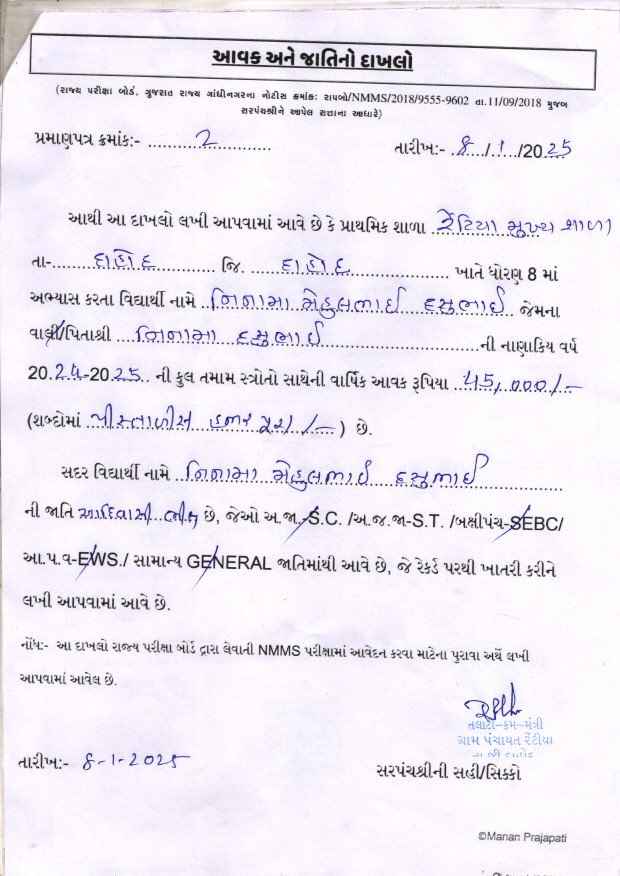 આવક અને જાતિનો દાખલો
(રાજ્ય પરીક્ષા બોર્ડ, ગુજરાત રાજ્ય ગાંધીનગરના નોટીસ ક્રમાંક: રાપબો/NMMS/2018/9555-9602 તા.11/09/2018 મુજબ
સરપંચશ્રીને આપેલ સત્તાના આધારે)
પ્રમાણપત્ર ક્રમાંક:- 2 તારીખ:- 8/1/2025
આથી આ દાખલો લખી આપવામાં આવે છે કે પ્રાથમિક શાળા રેંટિયા મુખ્ય શાળા
તા- દાહોદ જિ. દાહોદ ખાતે ધોરણ 8 માં
અભ્યાસ કરતા વિદ્યાર્થી નામે નિનામા મેહુલભાઈ દસુભાઈ જેમના
વાલી/પિતાશ્રી નિનામા દસુભાઈ ની નાણાકિય વર્ષ
2024-2025 ની કુલ તમામ સ્ત્રોતો સાથેની વાર્ષિક આવક રૂપિયા 45,000/-
(શબ્દોમાં પીસ્તાળીસ હજાર પુરા /-) છે.
સદર વિદ્યાર્થી નામે નિનામા મેહુલભાઈ દસુભાઈ
ની જાતિ આદિવાસી ભીલ છે, જેઓ અ.જા.-S.C. /અ.જ.જા-S.T. /બક્ષીપંચ-SEBC/
આ.પ.વ-EWS./ સામાન્ય GENERAL જાતિમાંથી આવે છે, જે રેકર્ડ પરથી ખાતરી કરીને
લખી આપવામાં આવે છે.
નોંધ:- આ દાખલો રાજ્ય પરીક્ષા બોર્ડ દ્વારા લેવાતી NMMS પરીક્ષામાં આવેદન કરવા માટેના પુરાવા અર્થે લખી
આપવામાં આવેલ છે.
તલાટી-કમ-મંત્રી
ગ્રામ પંચાયત રેંટીયા
તારીખ:- 8-1-2025
સરપંચશ્રીની સહી/સિક્કો
©Manan Prajapati